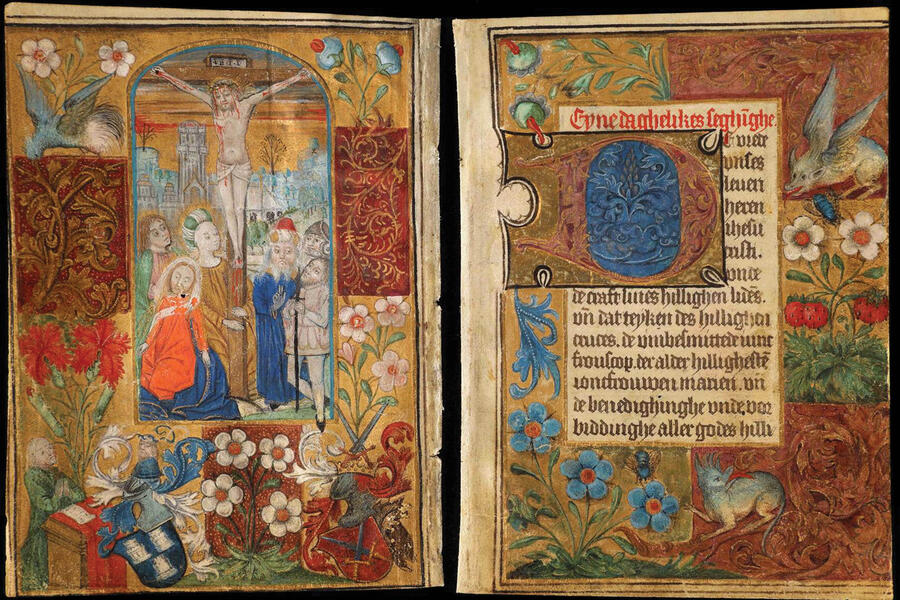 INRI
Eyne daghelikes seghīghe.
DE vrede
vnses
leuen
heren
ihesu
cristi.
vnde
de craft sines hillighen lidēs.
vn̄ dat teyken des hillighen
cruces. de vnbesmittede iunc
frouscop. der alder hillighestē
ioncfrouwen marien. vn̄
de benedighinghe vnde vor
biddinghe aller godes hilli